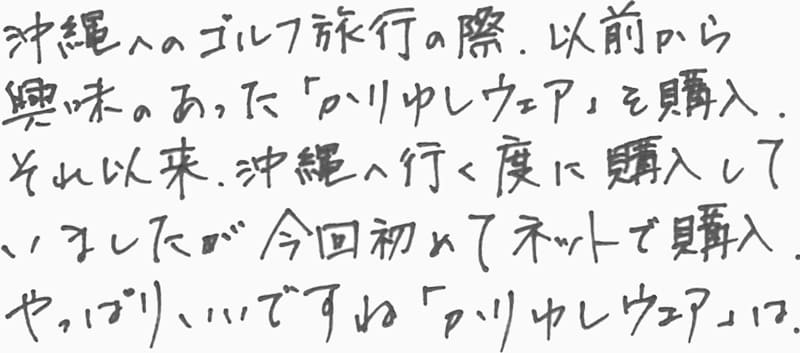 沖縄へのゴルフ旅行の際、以前から
興味のあった「かりゆしウェア」を購入、
それ以来、沖縄へ行く度に購入して
いましたが今回初めてネットで購入、
やっぱりいいですね「かりゆしウェア」は、